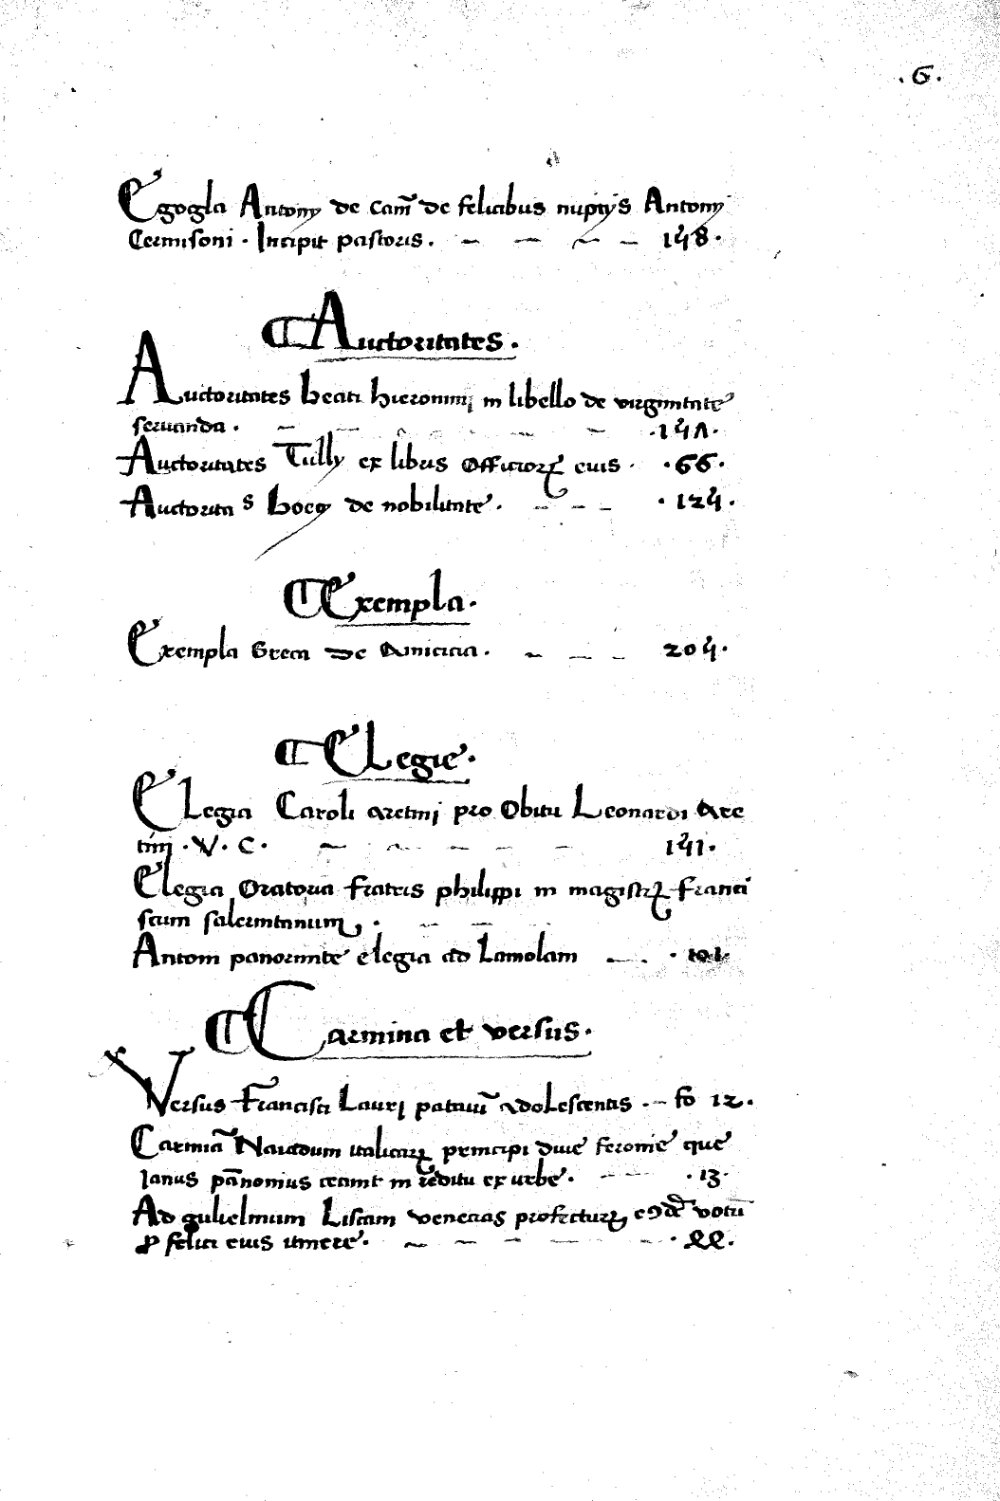 .6.
Egogla Antonij de Cam̃ de felicibus nuptijs Antonij
Cermisoni. Incipit pastoris. 148.
Auctoritates.
Auctoritates beati hieronimi in libello de virginitate
seruanda. .147.
Auctoritates Tullij ex libris officioꝝ eius. .66.
Auctoritas boecij de nobilitate. .124.
Exempla.
Exempla Greca de Amicicia. 204.
Elegie.
Elegia Caroli aretinj pro obitu Leonardi Are
tinj .V. C. 141.
Elegia oratoria fratris philippi in magistꝝ franci
scum salermtanum.
Antonii panormite elegia ad Lamolam .101.
Carmina et versus.
Versus Francisci Laurj patauĩ adolescentis. fo 12.
Carmiã Naiadum italicaꝝ principi diue feronie que
Ianus pãnonius ceamt in reditu ex urbe. .13.
Ad gulielmum Liscam venecias profecturꝝ votũ
ꝓ felici eius itinere. .22.